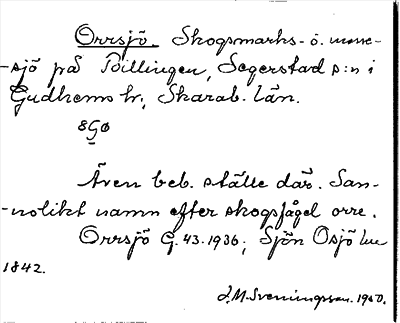 Orrsjö. Skogsmarks- o. mosse-
-sjö på Billingen, Segerstad s:n i
Gudhems hr, Skarab. län.
8GØ
Även beb. ställe där. San-
-nolikt namn efter skogsfågel orre.
Orrsjö G. 43. 1936; Sjön Osjö
1842.
J. M. Sveningsson. 1950.